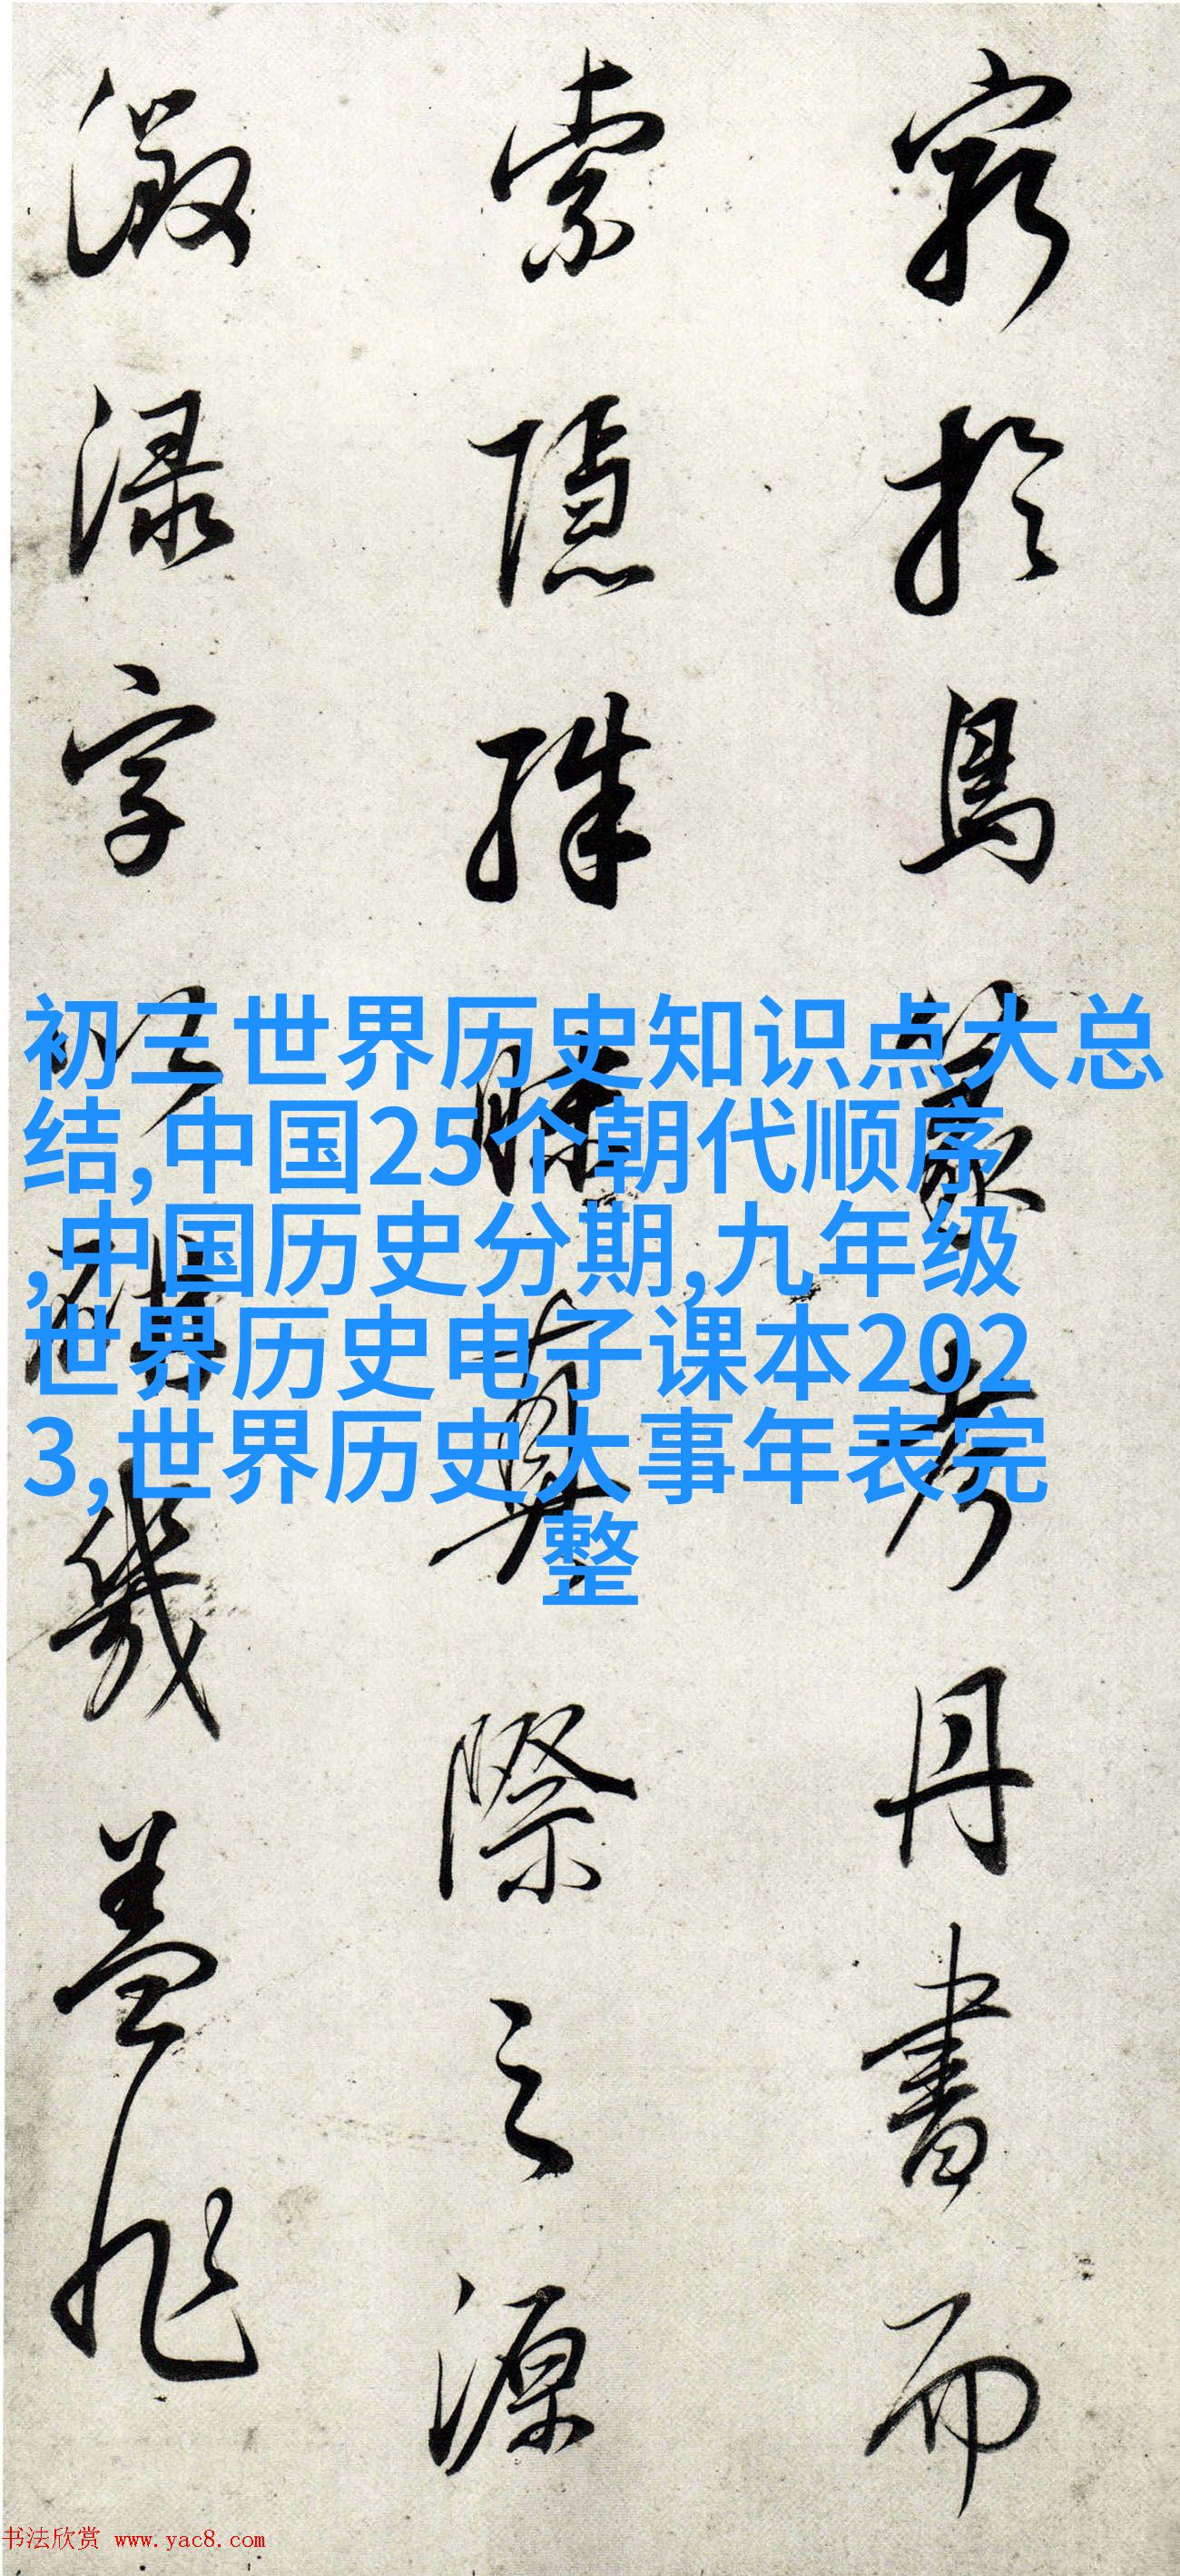 窮於鳥篆考丹書而
索隱殊
際之源
激渌字
幾盖非
初三世界历史知识点大总
结,中国25个朝代顺序
,中国历史分期,九年级
世界历史电子课本202
3,世界历史大事年表完
整
书法欣赏 www.yac8.com